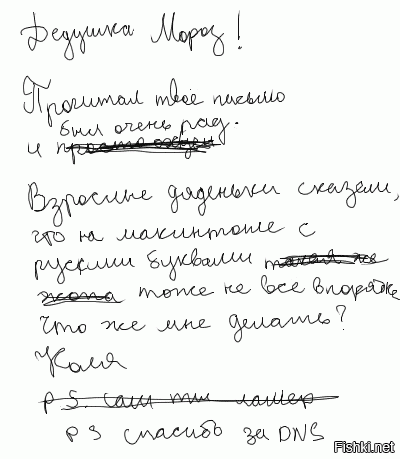 Дедушка Мороз!
Прочитал твое письмо
был очень рад.
и
Взрослые дяденьки сказали,
что на макинтоше с
рускими буквами такая же
жопа тоже не все впорядке
Что же мне делать?
Коля
PS. сам ты ламер
PS спасибо за DNS
Fishki.net